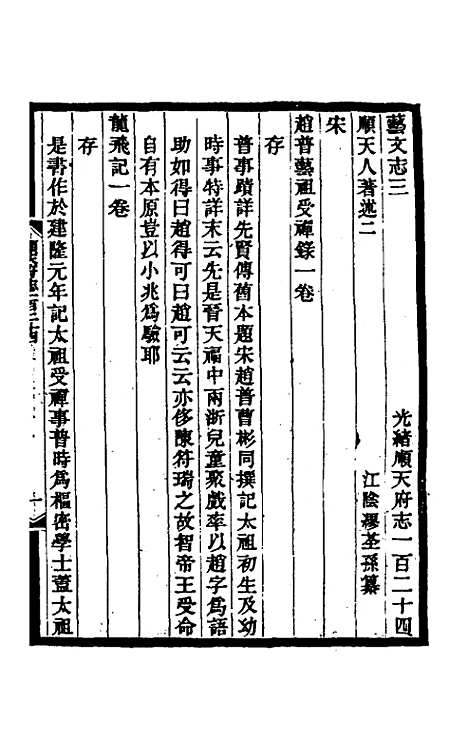 藝文志三 光緒順天府志一百二十四
順天人著述二 江陰繆荃孫纂
宋
趙普藝祖受禪錄一卷
存
普事蹟詳先賢傳舊本題宋趙普曹彬同撰記太祖初生及幼
時事特詳末云先是晉天福中兩浙兒童聚戲率以趙字爲語
助如得曰趙得可曰趙可云云亦侈陳符瑞之故智帝王受命
自有本原豈以小兆爲驗耶
龍飛記一卷
存
是書作於建隆元年記太祖受禪事普時爲樞密學士蓋太祖